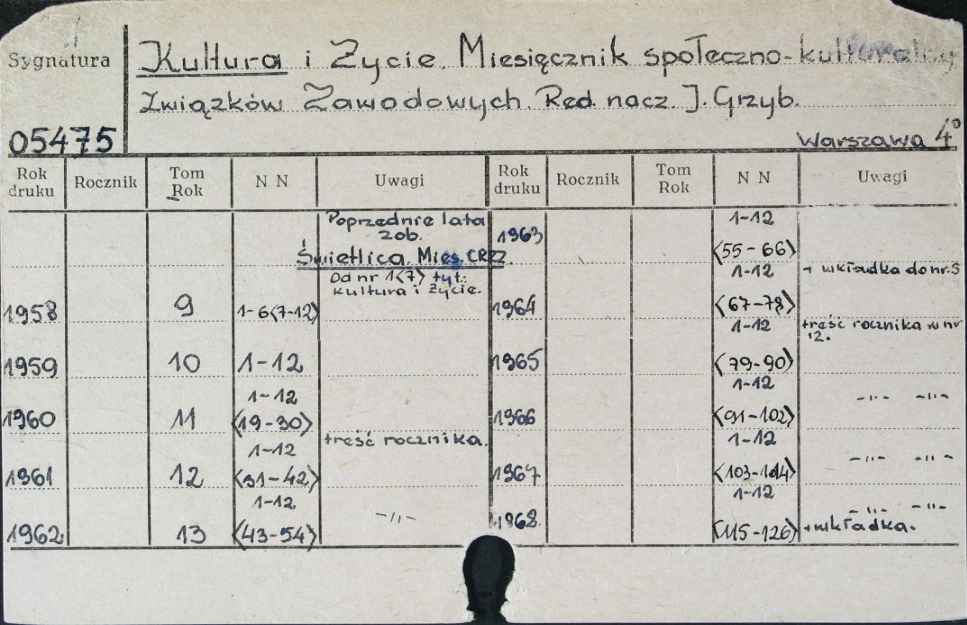 Sygnatura
Kultura i Życie. Miesięcznik społeczno-kulturalny
Związków Zawodowych. Red. nacz. J. Grzyb.
05475 Warszawa 4°
Rok druku Rocznik Tom Rok N N Uwagi Rok druku Rocznik Tom Rok N N Uwagi
Poprzednie lata
zob.
Świetlica. Mies. CRZZ.
1963 1-12
<55-66>
Od nr 1<7> tyt.:
Kultura i Życie.
1958 9 1-6<7-12>
1964 1-12 + wkładka do nr. 5
<67-78>
1959 10 1-12
1965 1-12 treść rocznika w nr
12.
<79-90>
1960 11 1-12
<19-30>
1966 1-12 -„- -„-
<91-102>
1961 12 1-12 treść rocznika.
<31-42>
1967 1-12 -„- -„-
<103-114>
1962 13 1-12 -„-
<43-54>
1968 1-12 -„- -„-
<115-126> + wkładka.